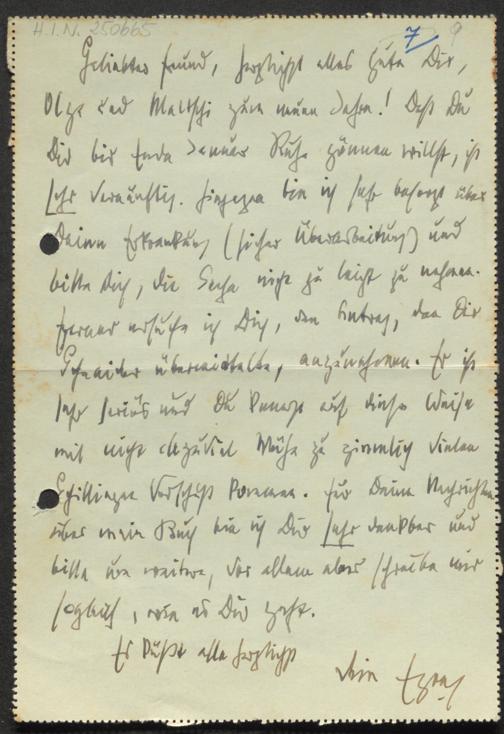 H.I.N. 250665
7 9
Geliebter Freund, herzlichst alles Gute Dir,
Olga und Maltschi zum neuen Jahre! Daß Du
Dir bis Ende Jenner Ruhe gönnen willst, ist
sehr vernünftig. Hingegen bin ich sehr besorgt über
Deine Erkrankung (sicher Überarbeitung) und
bitte Dich, die Sache nicht zu leicht zu nehmen.
Ferner ersuche ich Dich, den Antrag, den Dir
Schneider übermittelte, anzunehmen. Er ist
sehr seriös und Du kannst auf diese Weise
mit nicht allzuviel Mühe zu ziemlich vielen
Schillingen Vorschuß kommen. Für Deine Nachrichten
über mein Buch bin ich Dir sehr dankbar und
bitte um weitere, vor allem aber schreibe mir
sogleich, wie es Dir geht.
Es küßt alle herzlichst
Dein